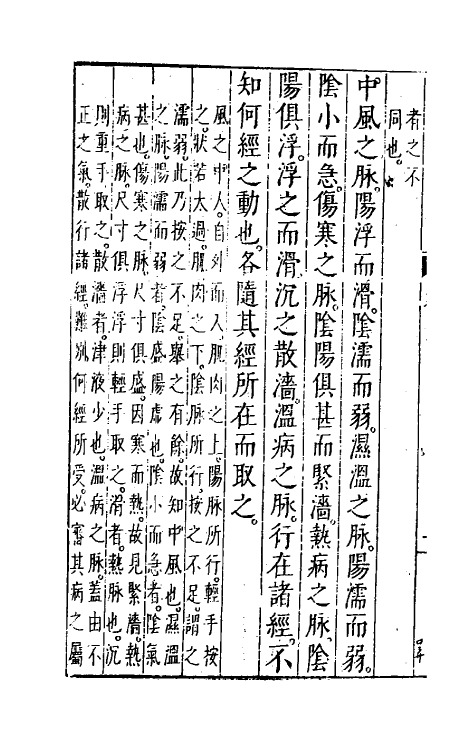 者之不
同也。
中風之脉。陽浮而滑。陰濡而弱。濕溫之脉。陽濡而弱。
陰小而急。傷寒之脉。陰陽俱甚而緊濇。熱病之脉。陰
陽俱浮。浮之而滑。沉之散濇。溫病之脉。行在諸經。不
知何經之動也。各隨其經所在而取之。
風之中人。自外而入。肌肉之上。陽脉所行。輕手按
之。狀若太過。肌肉之下。陰脉所行。按之不足。謂之
濡弱。此乃按之不足。舉之有餘。故知中風也。濕溫
之脉。陽濡而弱者。陰盛陽虛也。陰小而急者。陰氣
甚也。傷寒之脉。尺寸俱盛。因寒而熱。故見緊濇。熱
病之脉。尺寸俱浮。浮則輕手取之。滑者。熱脉也。沉
則重手取之。散濇者。津液少也。溫病之脉。蓋由不
正之氣。散行諸經。難別何經所受。必審其病之屬